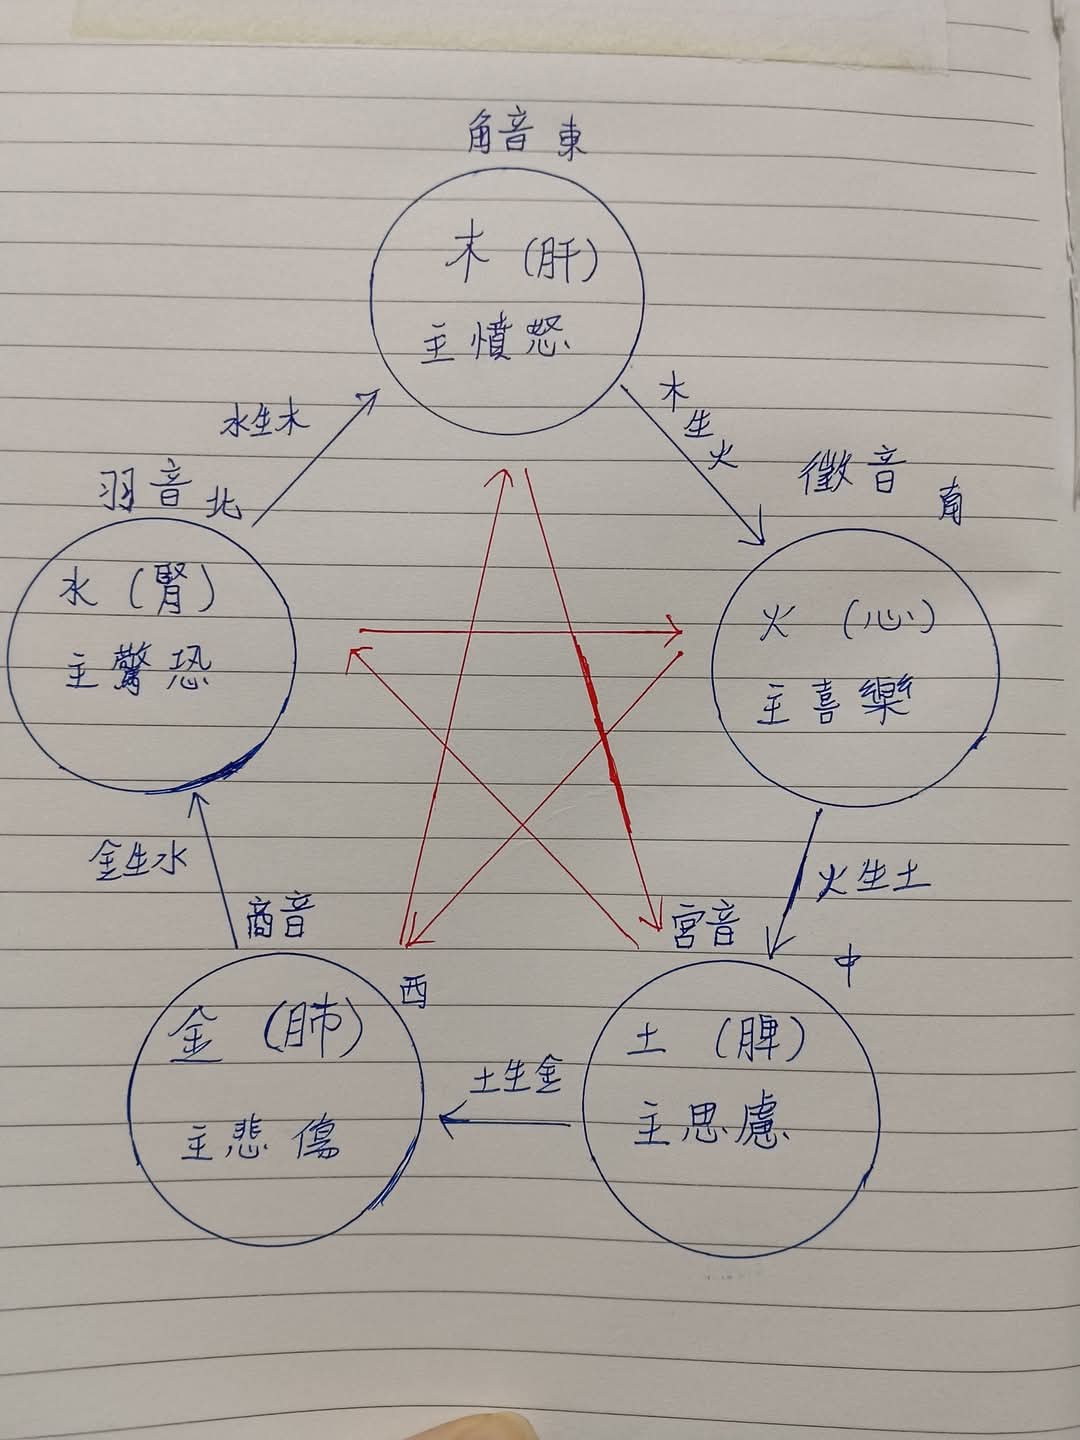 角音 東
木 (肝)
主憤怒
水生木
木生火
羽音 北
徵音 南
水 (腎)
主驚恐
火 (心)
主喜樂
金生水
火生土
商音
宮音
中
西
金 (肺)
主悲傷
土生金
土 (脾)
主思慮